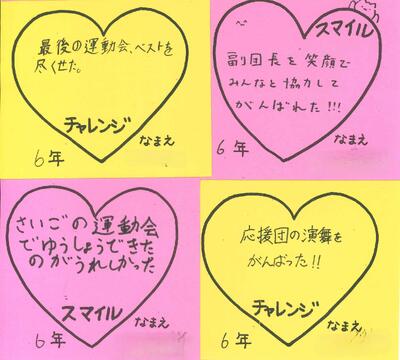 最後の運動会、ベストを
尽くせた。
チャレンジ
なまえ
6年
スマイル
副団長を笑顔で
みんなと協力して
がんばれた!!!
なまえ
6年
さいごの運動会
でゆうしょうできた
のがうれしかった
スマイル
なまえ
6年
応援団の演舞を
がんばった!!
チャレンジ
なまえ
6年